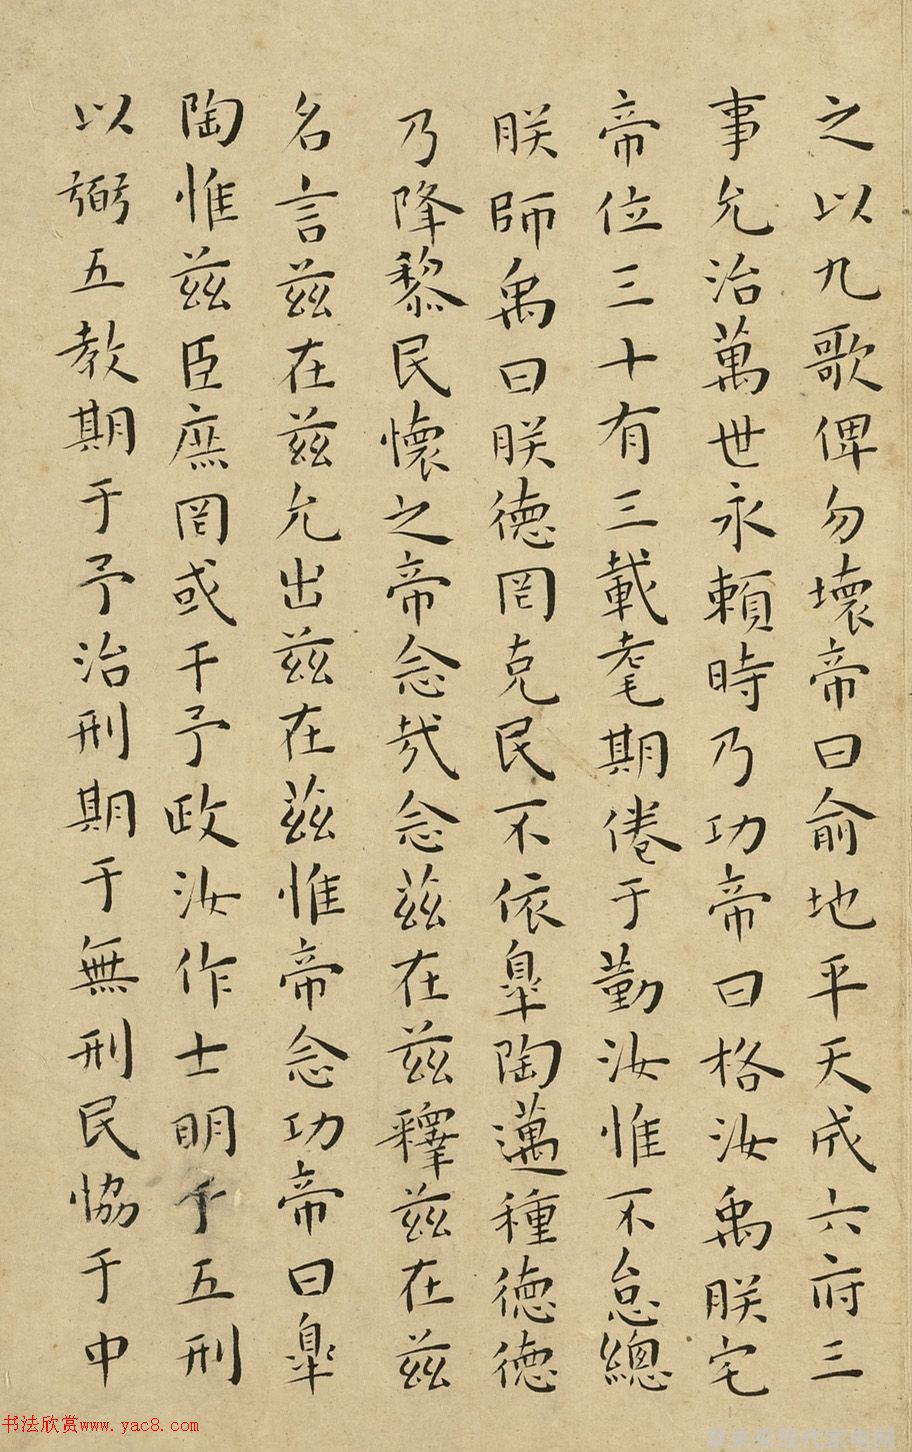 之以九歌俾勿壞帝曰俞地平天成六府三
事允治萬世永賴時乃功帝曰格汝禹朕宅
帝位三十有三載耄期倦于勤汝惟不怠總
朕師禹曰朕德罔克民不依臯陶邁種德德
乃降黎民懷之帝念哉念茲在茲釋茲在茲
名言茲在茲允出茲在茲惟帝念功帝曰臯
陶惟茲臣庶罔或干予政汝作士明于五刑
以弼五教期于予治刑期于無刑民協于中
书法欣赏www.yac8.com